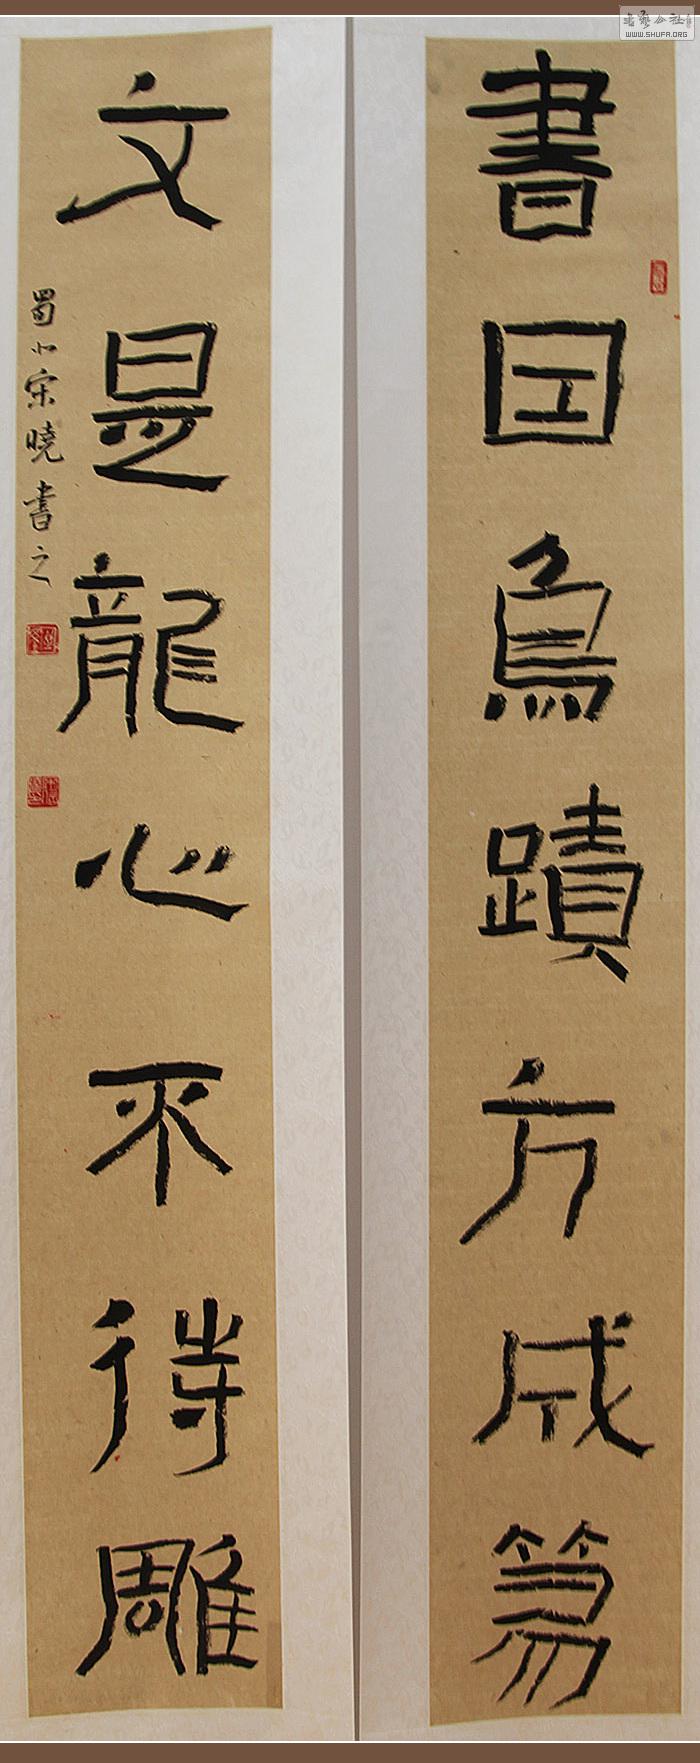 書因鳥蹟方成篆
文是龍心不待雕
蜀北宋曉書之
书艺公社
WWW.SHUFA.ORG